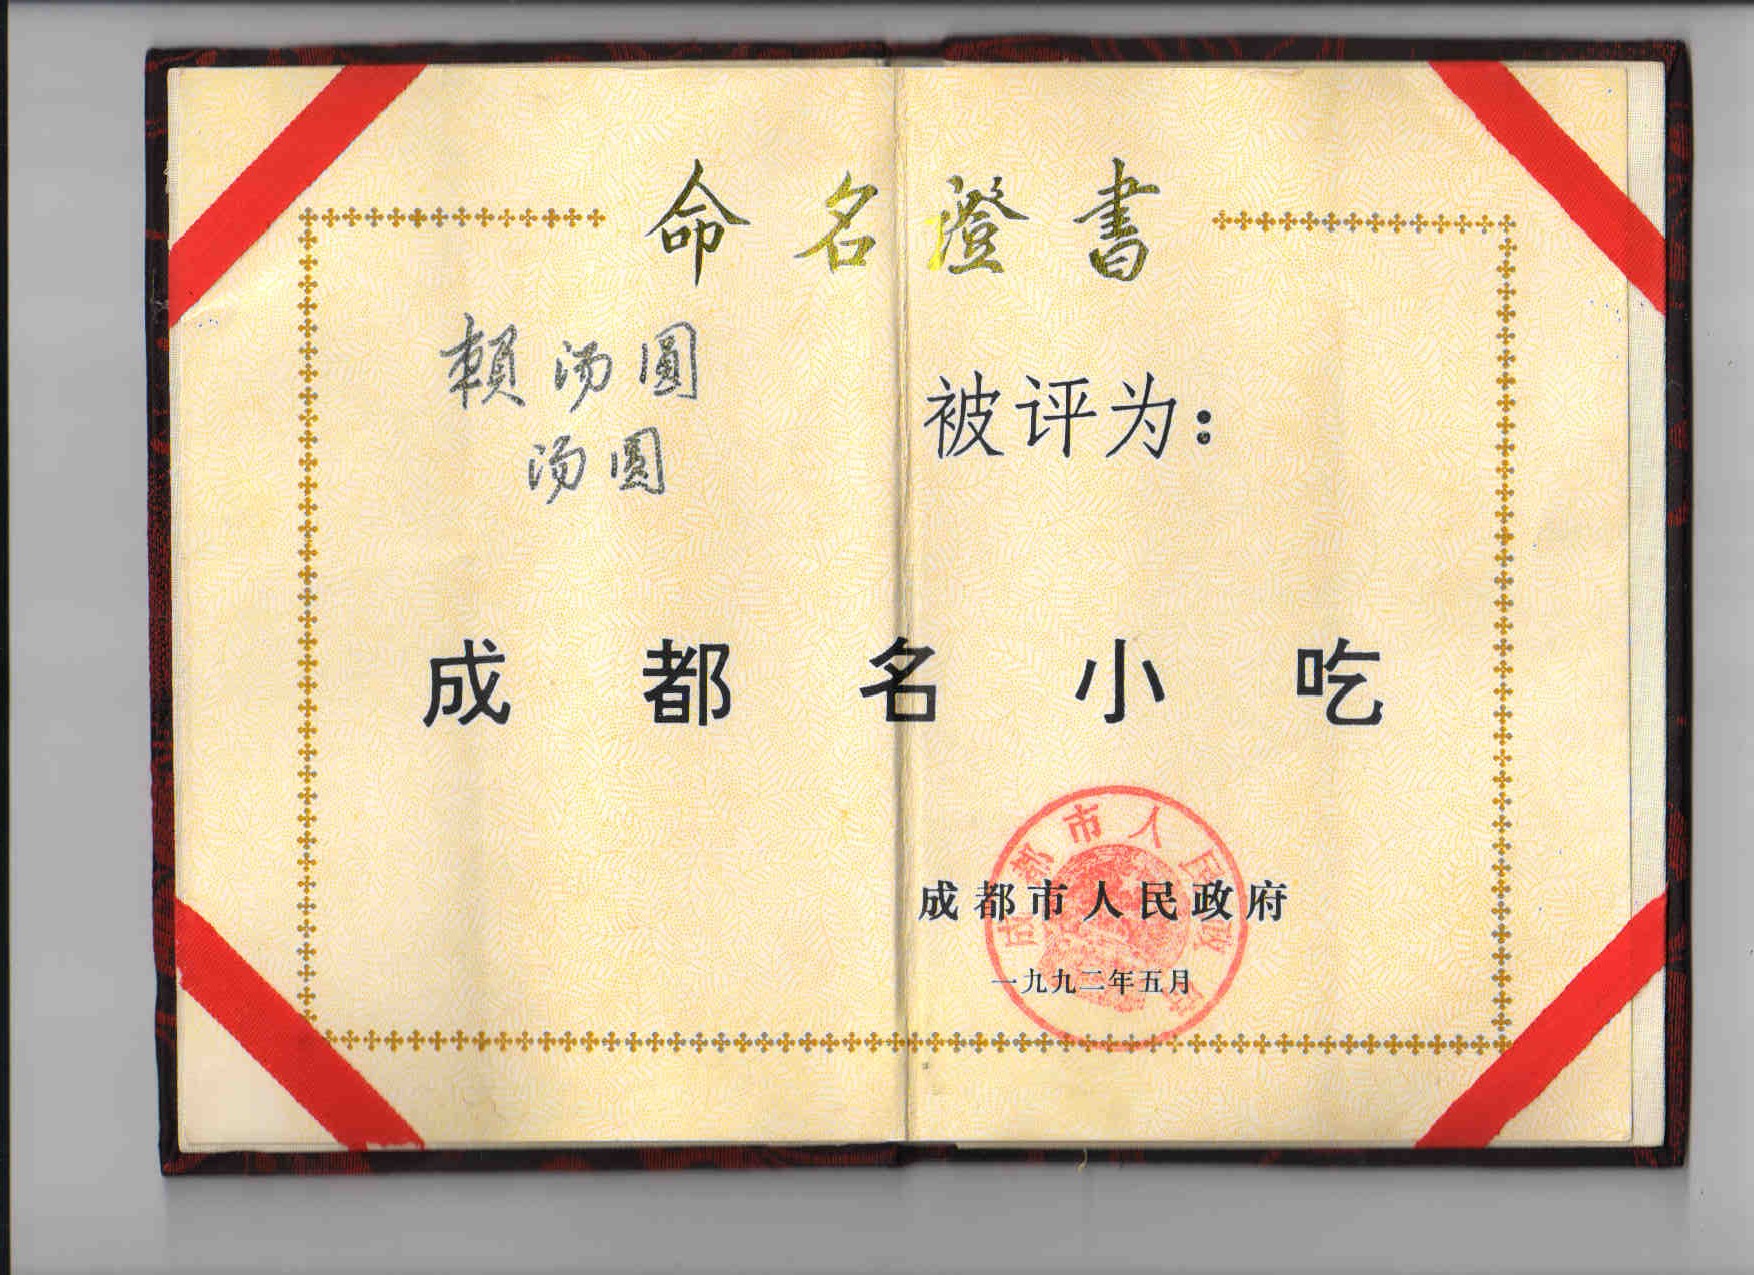 命名證書
賴汤圓
汤圆
被评为：
成都名小吃
成都市人民政府
一九九二年五月
成都市人民政府